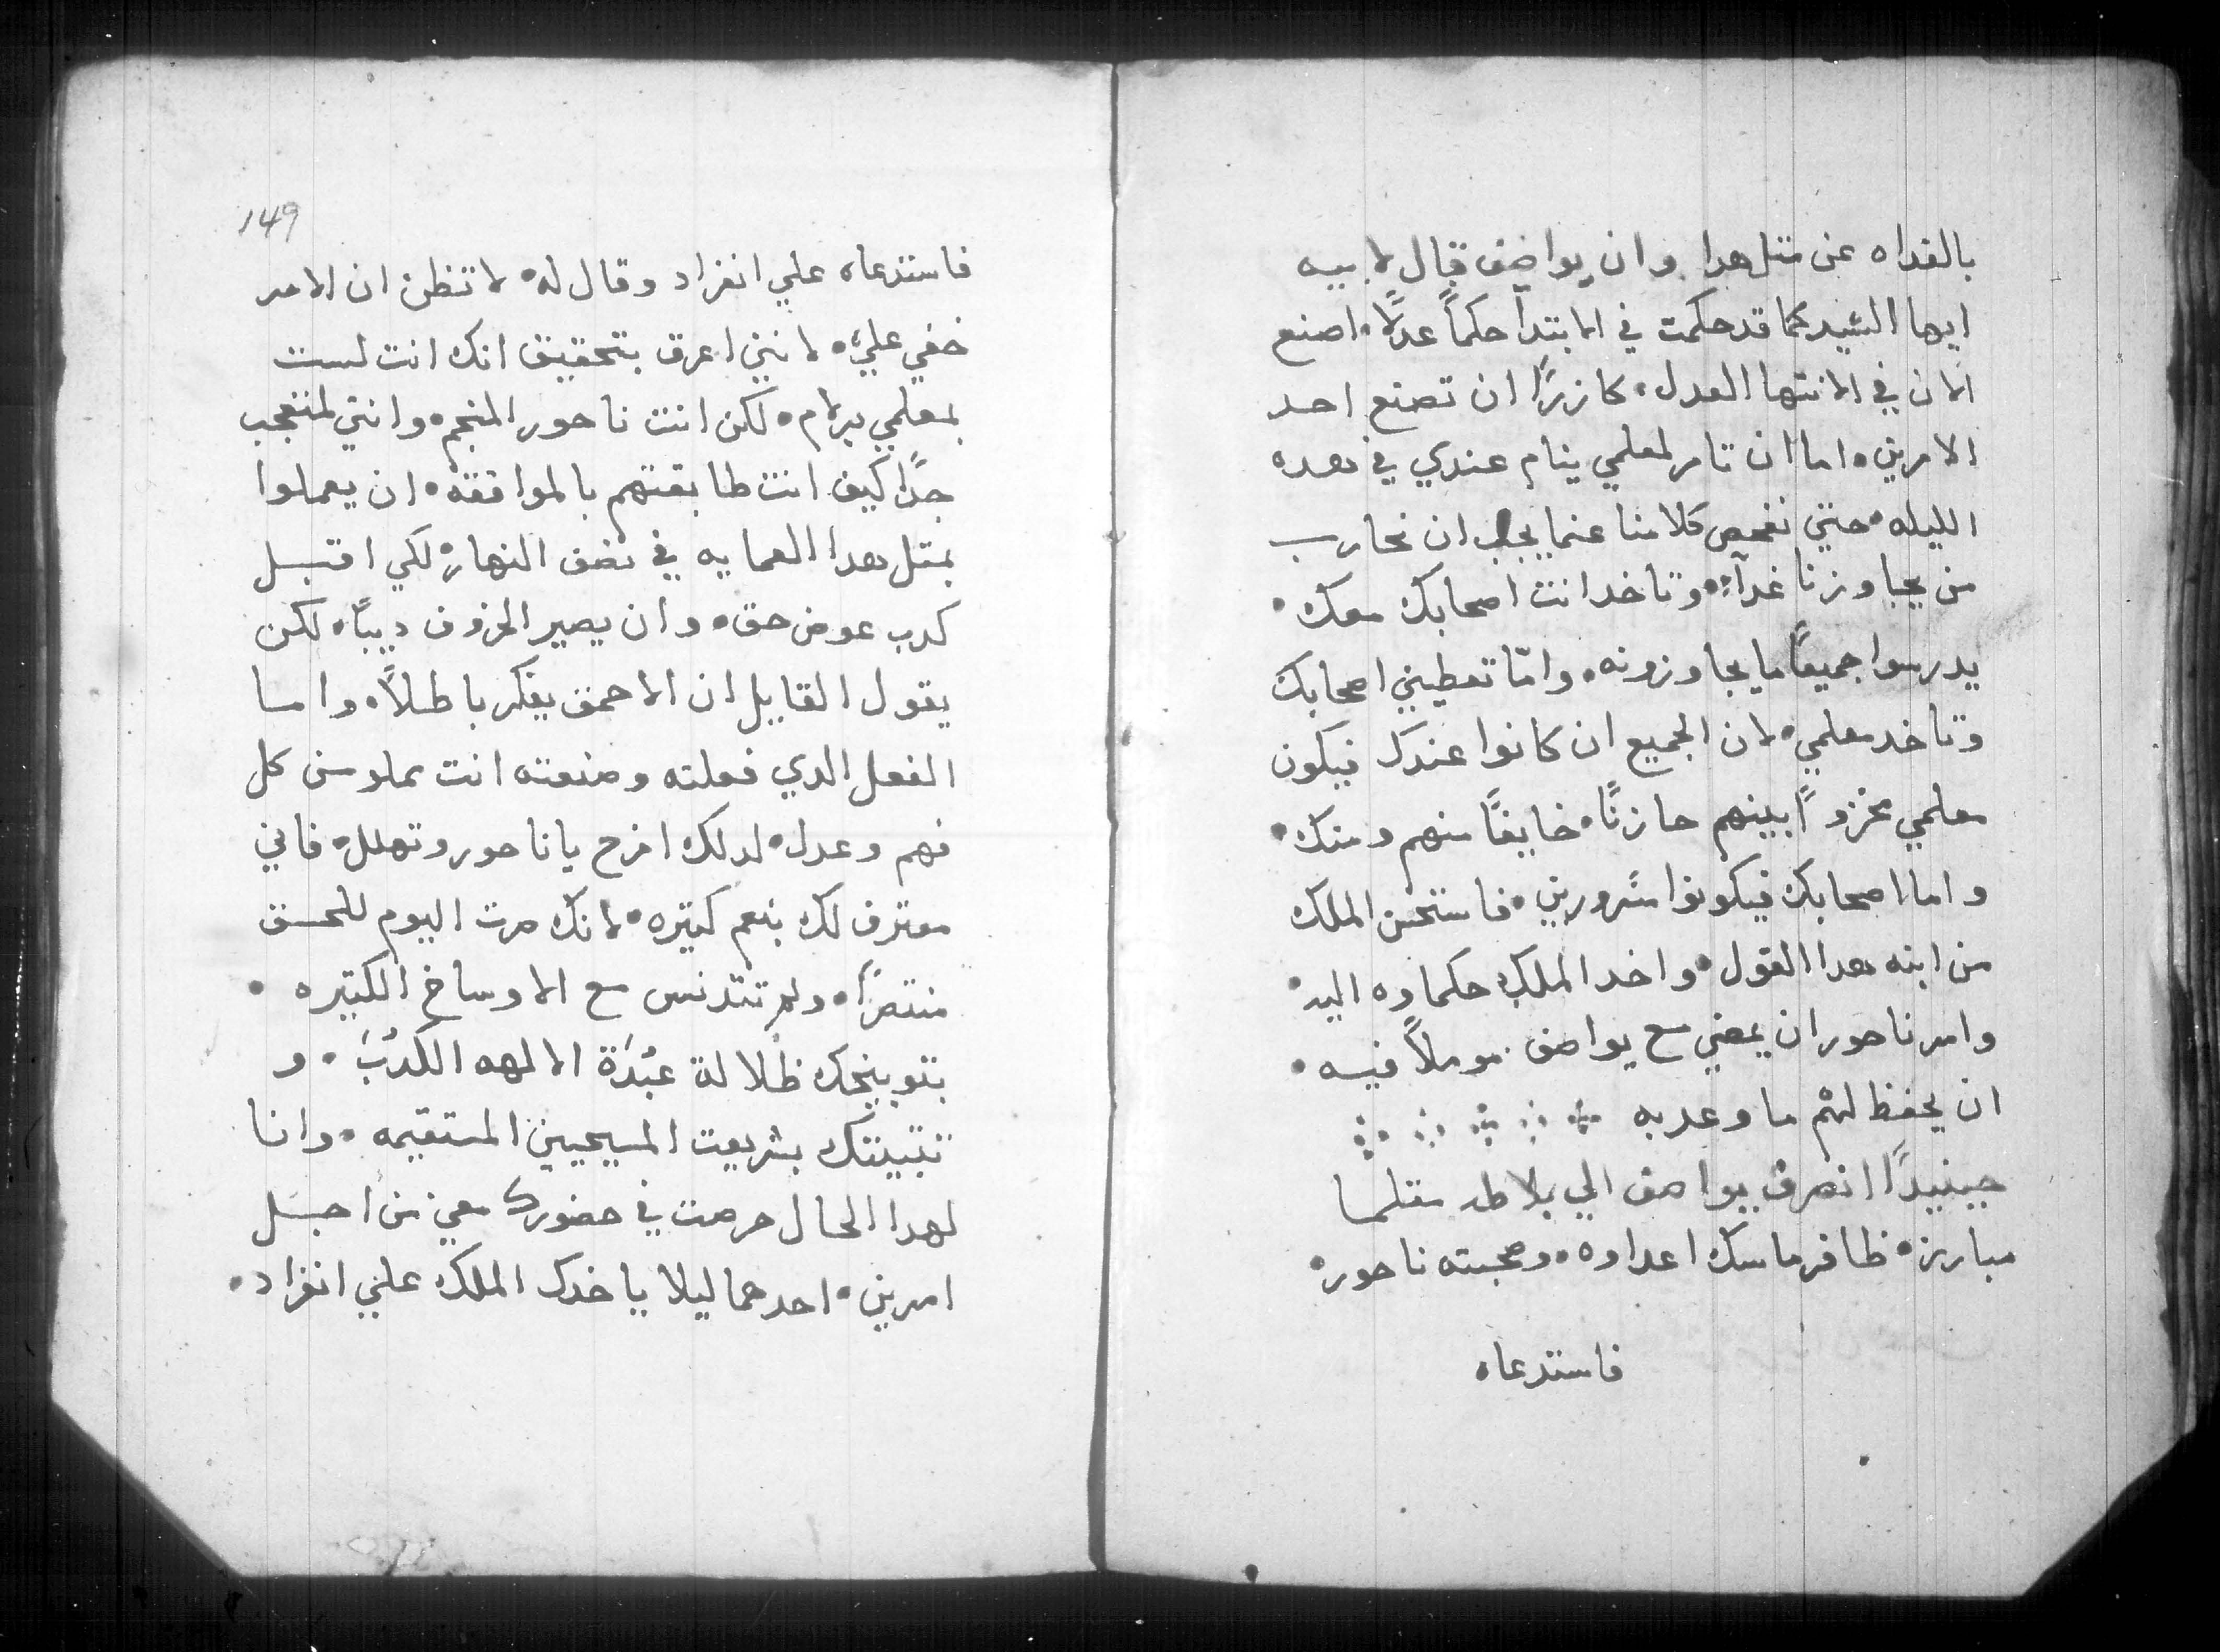 بالغداه عن متل هدا وان يواصف قال لابيه
ايها السيد كما قد حكمت في الابتدا حكماً عدلاً. اصنع
الان في الانتها العدل. كازرًا ان تصنع احد
الامرين. اما ان تامر لمعلمي ينام عندي في هده
الليله. حتي نفحص كلامنا عنما يجب ان نحارب
من يجاوزنا غدآء. وتاخد انت اصحابك معك.
يدرسوا جميعاً ما يجاوزونه. وامّا تعطيني اصحابك
وتاخد معلمي. لان الجميع ان كانوا عندك فيكون
معلمي مخزوًا بينهم حازنًا. خايفًا منهم ومنك.
واما اصحابك فيكونوا مسرورين. فاستحسن الملك
من ابنه هدا القول. واخد الملك حكماوه اليه.
وامر ناحور ان يمضي مع يواصف. موملاً فيه.
ان يحفظ لهم ما وعد به
حينيدًا انصرف يواصف الي بلاطه متلما
مبارز. ظافر ماسك اعداوه. وصحبته ناحور.
فاستدعاه
149
فاستدعاه علي انفراد وقال له. لا تظن ان الامر
خفي عليّ. لانني اعرف بتحقيق انك انت لست
بمعلمي برلام. لكن انت ناحور المنجم. وانني لمتعجب
جدًا كيف انت طابقتهم بالموافقه. ان يعملوا
بمتل هدا العمايه في نصف النهار. لكي اقتبل
كدب عوض حق. وان يصير الخروف ديبًا. لكن
يقول القايل ان الاحمق يفكر باطلاً. واما
الفعل الدي فعلته وصنعته انت مملو من كل
فهم وعدل. لدلك افرح يا ناحور وتهلل. فاني
معترف لك بنعم كتيره. لانك صرت اليوم للحق
منتصرًا. ولم تتدنس مع الاوساخ الكتيره.
بتوبيخك ظلالة عبَدَة الالهه الكدُبَ. و
تتبيتك بشريعت المسيحيين المستقيمه. وانا
لهدا الحال حرصت في حضورك معي من اجل
امرين. احدهما ليلا ياخدك الملك علي انفراد.